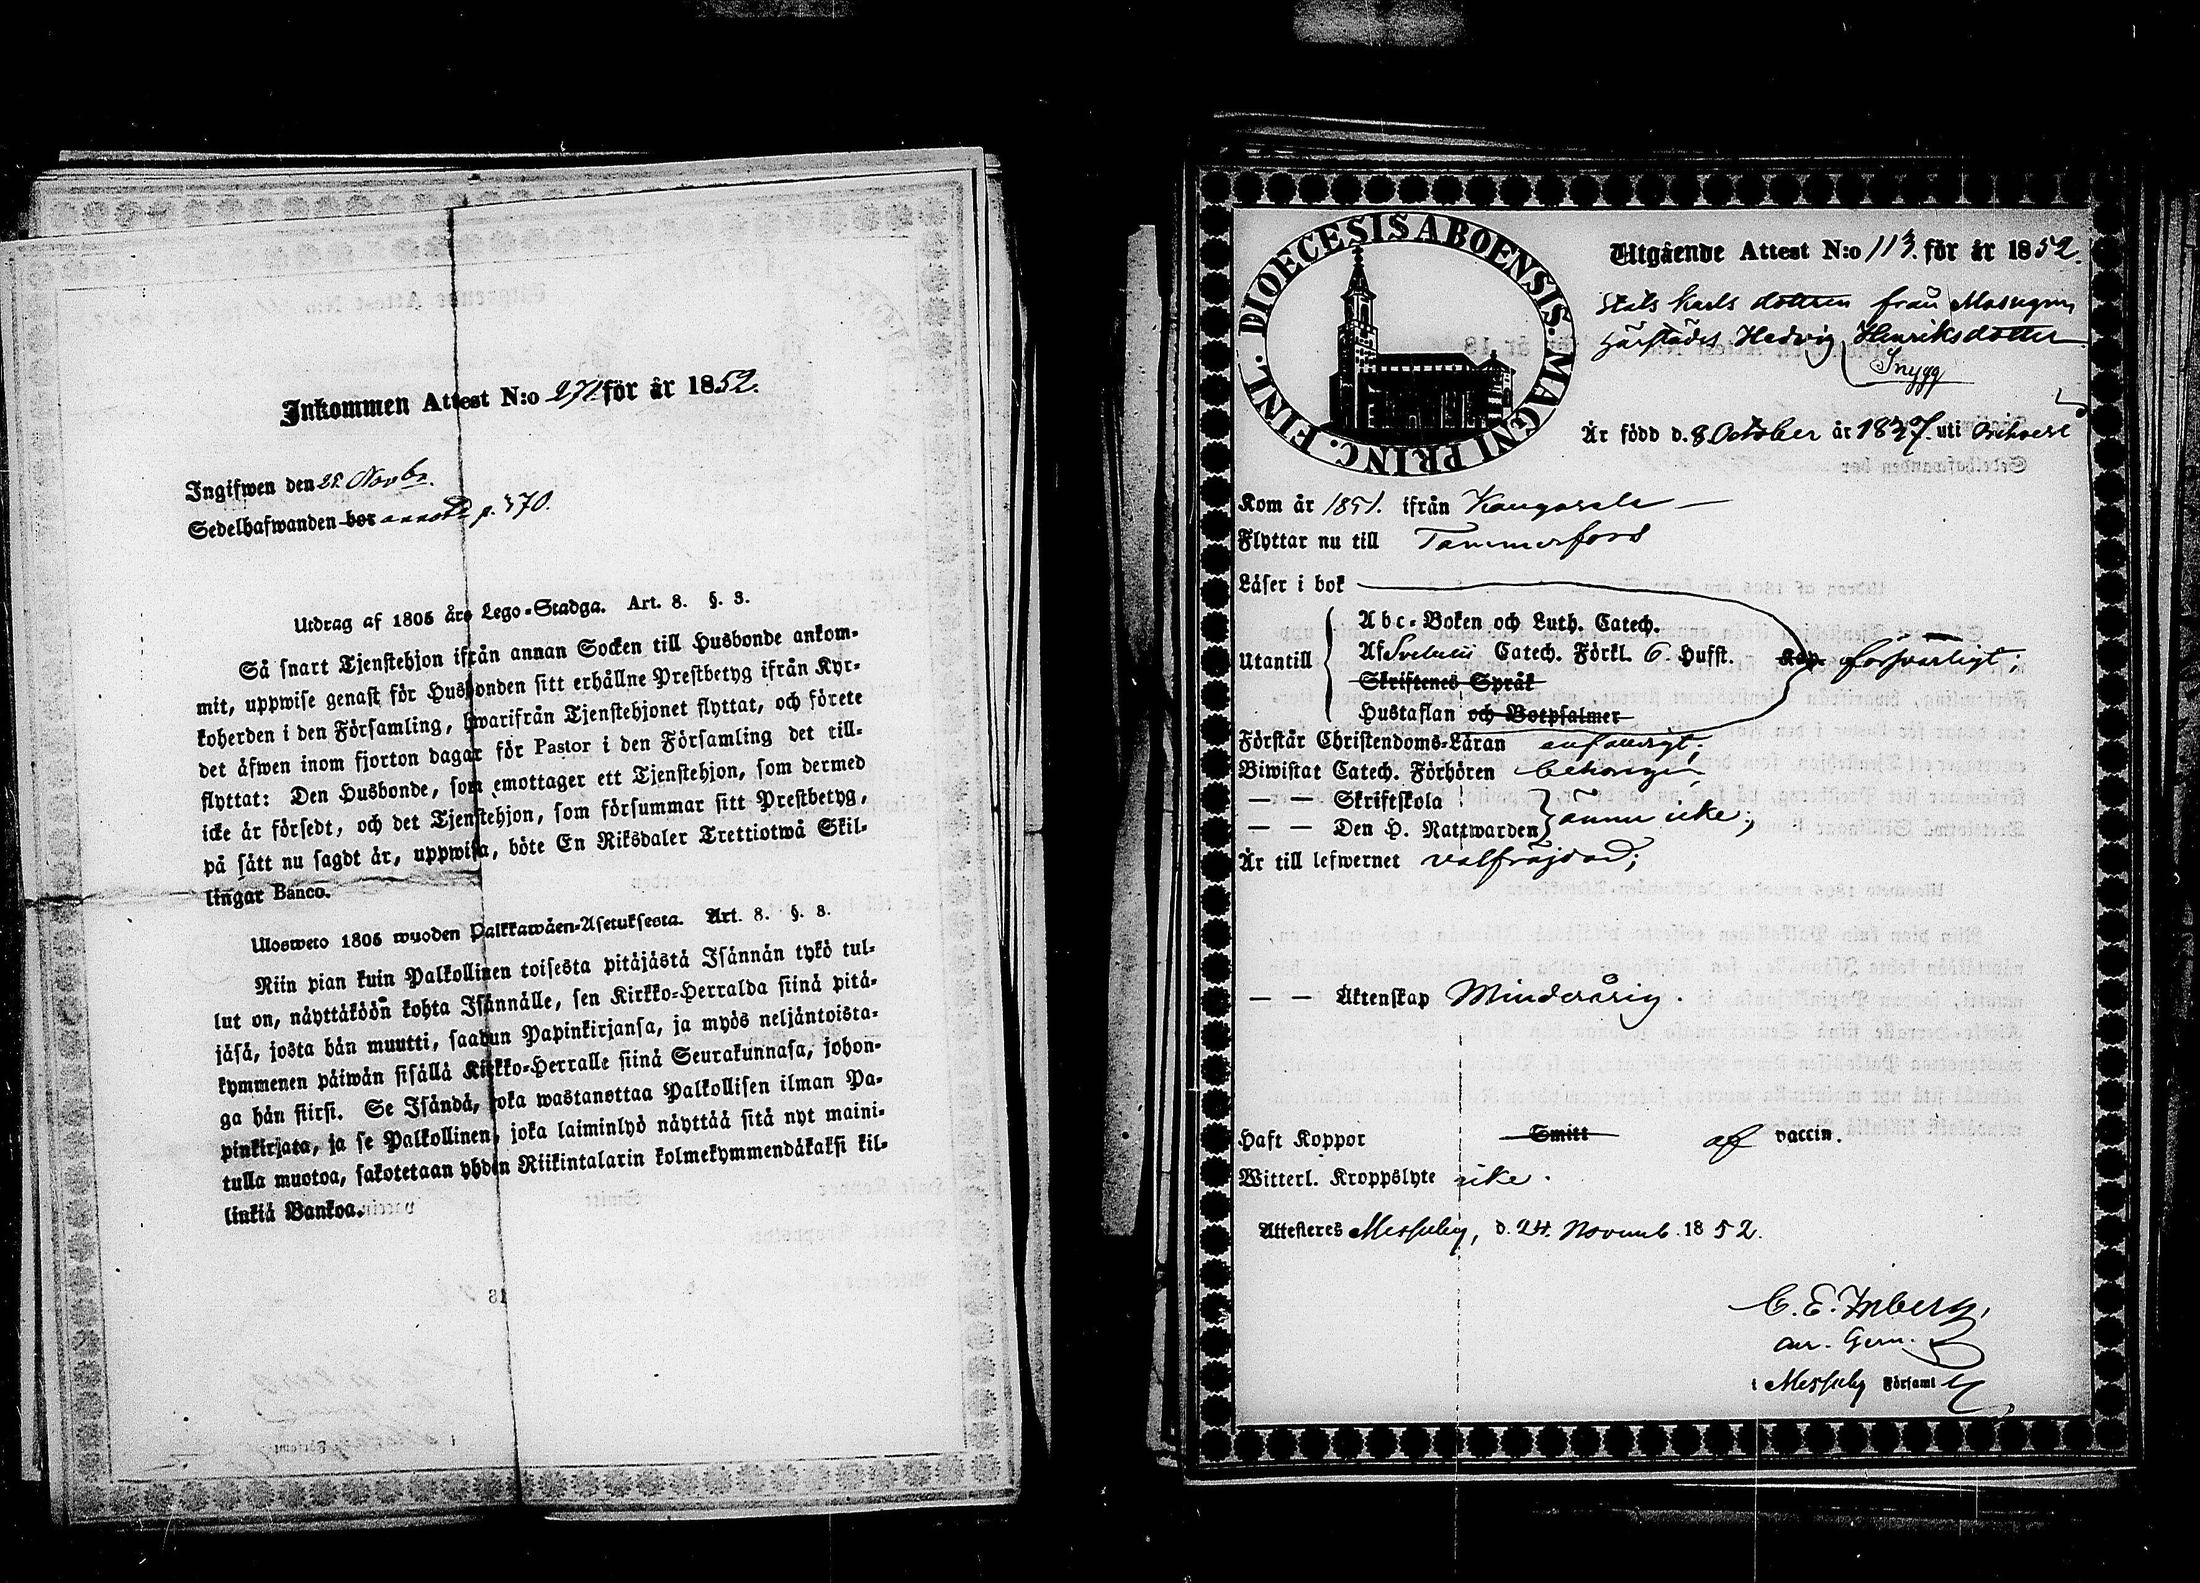 Inkommen Attest N:o 271 för år 1852.
Ingifwen den 25. Novbr.
Sedelhafwanden bor annotd p. 370.
Utdrag af 1805 års Lego-Stadga. Art. 8. §. 3.
Så snart Tjenstehjon ifrån annan Socken till Husbonde ankom-
mit, uppwise genast för Husbonden sitt erhållne Prestbetyg ifrån Kyr-
koherden i den Församling, hwarifrån Tjenstehjonet flyttat, och förete
det äfwen inom fjorton dagar för Pastor i den Församling det till-
flyttat: Den Husbonde, som emottager ett Tjenstehjon, som dermed
icke är försedt, och det Tjenstehjon, som försummar sitt Prestbetyg,
på sätt nu sagdt är, uppwisa, böte En Riksdaler Trettiotwå Skil-
lingar Banco.
Ulosweto 1805 wuoden Palkkawäen-Asetuksesta. Art. 8. §. 3.
Niin pian kuin Palkollinen toisesta pitäjästä Isännän tykö tul-
lut on, näyttäköön kohta Isännälle, sen Kirkko-Herralda siinä pitä-
jäsä, josta hän muutti, saadun Papinkirjansa, ja myös neljäntoista-
kymmenen päiwän sisällä Kirkko-Herralle siinä Seurakunnasa, johon-
ga hän siirsi. Se Isändä, joka wastanottaa Palkollisen ilman Pa-
pinkirjata, ja se Palkollinen, joka laiminlyö näyttää sitä nyt maini-
tulla muotoa, sakotetaan yhden Riikintalarin kolmekymmendäkaksi kil-
linkiä Bankoa.
DIOECESIS ABOENSIS. MAGNI PRINC. FINL.
Utgående Attest N:o 113. för år 1852.
Stats karls dottren från Masugnen
härstädes Hedvig Henriksdotter
Snygg
Är född d. 8 October år 1837. uti Orihvesi
Kom år 1851. ifrån Kangasala
Flyttar nu till Tammerfors
Läser i bok
Abc-Boken och Luth. Catech.
Utantill Af Svebelii Catech. Förkl. 6. Hufst. Kap. försvarligt;
Skriftenes Språk
Hustaflan och Botpsalmer
Förstår Christendoms-Läran enfaldigt;
Biwistat Catech. Förhören behörigen
— — Skriftskola
— — Den H. Nattwarden ännu icke;
Är till lefwernet välfräjdad;
— — Äktenskap Minderårig.
Haft Koppor Smitt af vaccin.
Witterl. Kroppslyte icke.
Attesteres Messuby, d. 24. Novemb. 1852.
C. E. Inberg,
i Messuby Församl